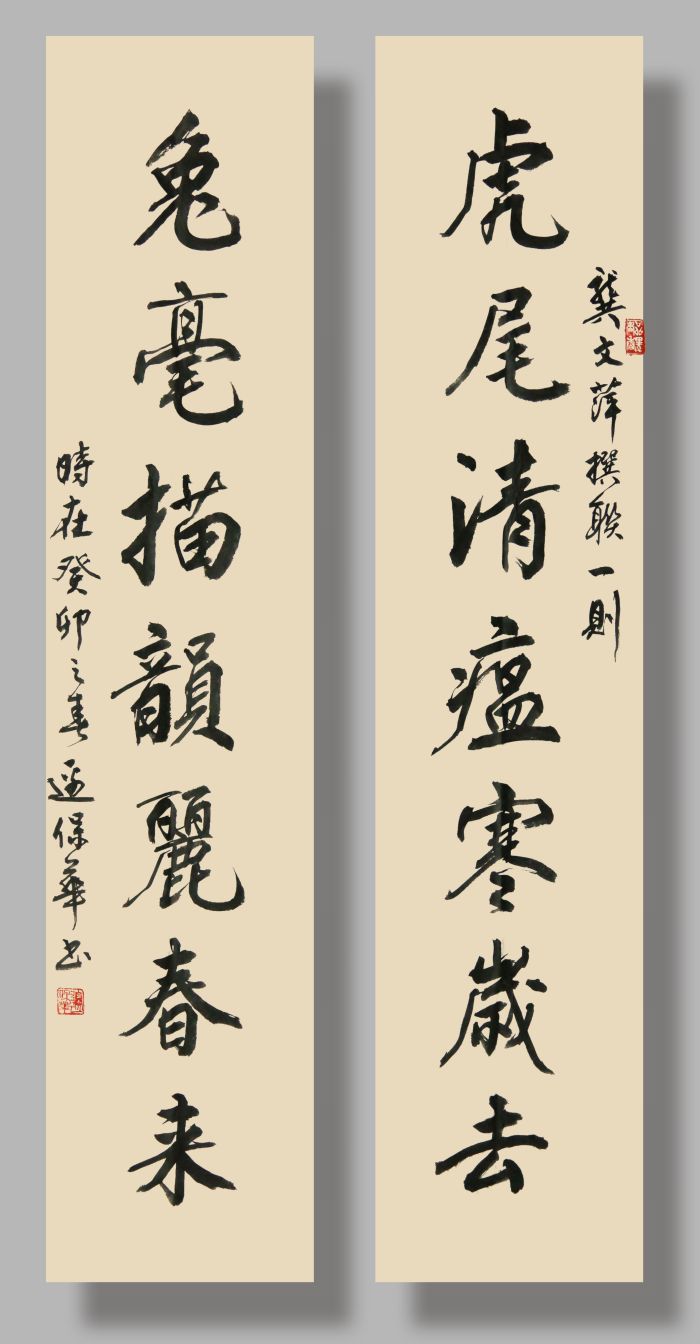 虎尾清瘟寒歲去
龔文萍撰聯一則
兔毫描韻麗春来
時在癸卯之春逯保華书